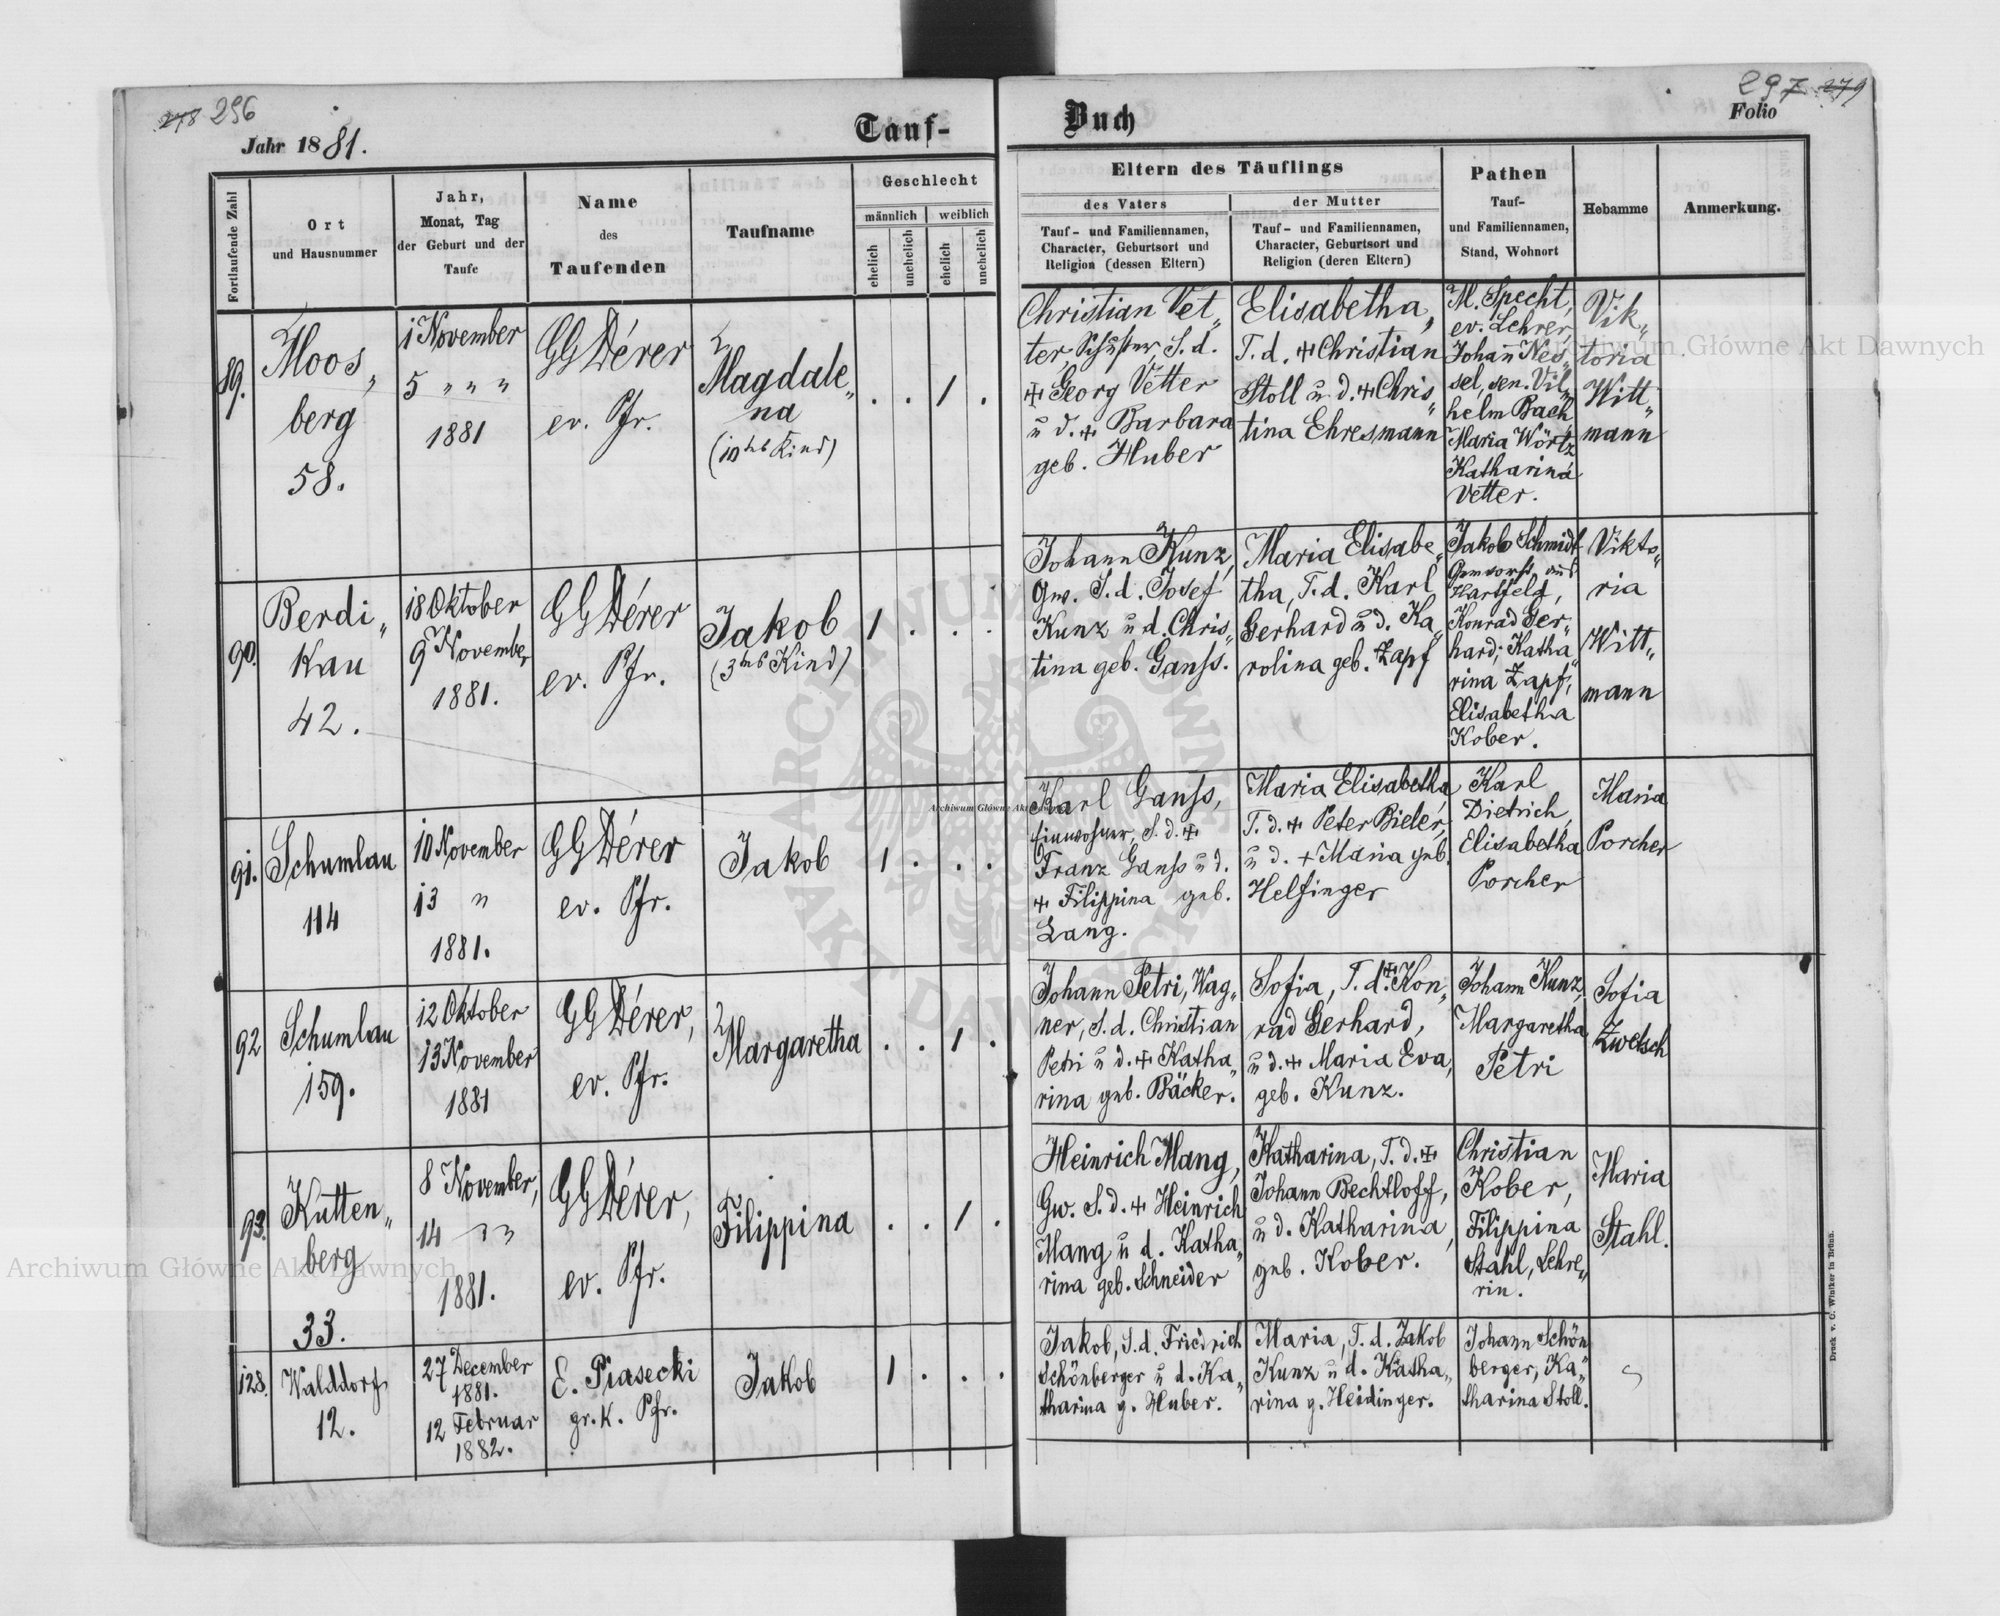 278 296
Jahr 1881.
Tauf-
Buch
297 279
Folio
Fortlaufende Zahl
Ort
und Hausnummer
Jahr,
Monat, Tag
der Geburt und der
Taufe
Name
des
Taufenden
Taufname
Geschlecht
männlich
weiblich
ehelich
unehelich
ehelich
unehelich
Eltern des Täuflings
des Vaters
der Mutter
Tauf- und Familiennamen,
Character, Geburtsort und
Religion (dessen Eltern)
Tauf- und Familiennamen,
Character, Geburtsort und
Religion (deren Eltern)
Pathen
Tauf-
und Familiennamen,
Stand, Wohnort
Hebamme
Anmerkung.
89.
Moos„
berg
58.
1 November
5 „ „ „
1881
GGDérer
ev. Pfr.
Magdale„
na
(10tes Kind)
. . 1 .
Christian Vet„
ter, Schuster, S. d.
+ Georg Vetter
u d. + Barbara
geb. Huber
Elisabetha,
T. d. + Christian
Stoll u d. + Chris„
tina Ehresmann
M. Specht,
ev. Lehrer
Johann Nes„
sel, sen. Vil„
helm Bach,
Maria Wörtz
Katharina
Vetter.
Vik„
toria
Witt„
mann
90.
Berdi„
kau
42.
18 Oktober
9 November
1881.
GGDérer
ev. Pfr.
Jakob
(3tes Kind)
1 . . .
Johann Kunz,
Gw. S. d. Josef
Kunz u d. Chris„
tina geb. Ganss.
Maria Elisabe„
tha, T. d. Karl
Gerhard u d. Ka„
rolina geb. Zapf
Jakob Schmidt
Gemvorst. aus
Hartfeld,
Konrad Ger„
hard; Katha„
rina Zapf,
Elisabetha
Kober.
Vikto„
ria
Witt„
mann
91.
Schumlau
114
10 November
13 „
1881.
GGDérer
ev. Pfr.
Jakob
1 . . .
Karl Ganss,
Einwohner, S. d. +
Franz Ganss u d.
+ Filippina geb.
Lang.
Maria Elisabetha
T. d. + Peter Bieler,
u d. + Maria geb.
Helfinger
Karl
Dietrich,
Elisabetha
Porcher
Maria
Porcher
92
Schumlau
159.
12 Oktober
13 November
1881
GGDérer,
ev. Pfr.
Margaretha
. . 1 .
Johann Petri, Wag„
ner, S. d. Christian
Petri u d. + Katha„
rina geb. Bäcker.
Sofia, T. d. + Kon„
rad Gerhard,
u d. + Maria Eva,
geb. Kunz.
Johann Kunz,
Margaretha
Petri
Sofia
Zwetsch
93.
Kutten„
berg
33.
8 November,
14 „ „
1881.
GGDérer,
ev. Pfr.
Filippina
. . 1 .
Heinrich Mang,
Gw. S. d. + Heinrich
Mang u d. Katha„
rina geb. Schneider
Katharina, T. d. +
Johann Bechtloff,
u d. Katharina,
geb. Kober.
Christian
Kober,
Filippina
Stahl, Lehre„
rin.
Maria
Stahl.
128.
Walddorf
12.
27 December
1881.
12 Februar
1882.
E. Piasecki
gr. k. Pfr.
Jakob
1 . . .
Jakob, S. d. Friedrich
Schönberger u d. Ka„
tharina g. Huber.
Maria, T. d. Jakob
Kunz u d. Katha„
rina g. Heidinger.
Johann Schön„
berger, Ka„
tharina Stoll.
Druck v. C. Winiker in Brünn.
Archiwum Główne Akt Dawnych
Archiwum Główne Akt Dawnych
Archiwum Główne Akt Dawnych
ARCHIWUM GŁÓWNE AKT DAWNYCH